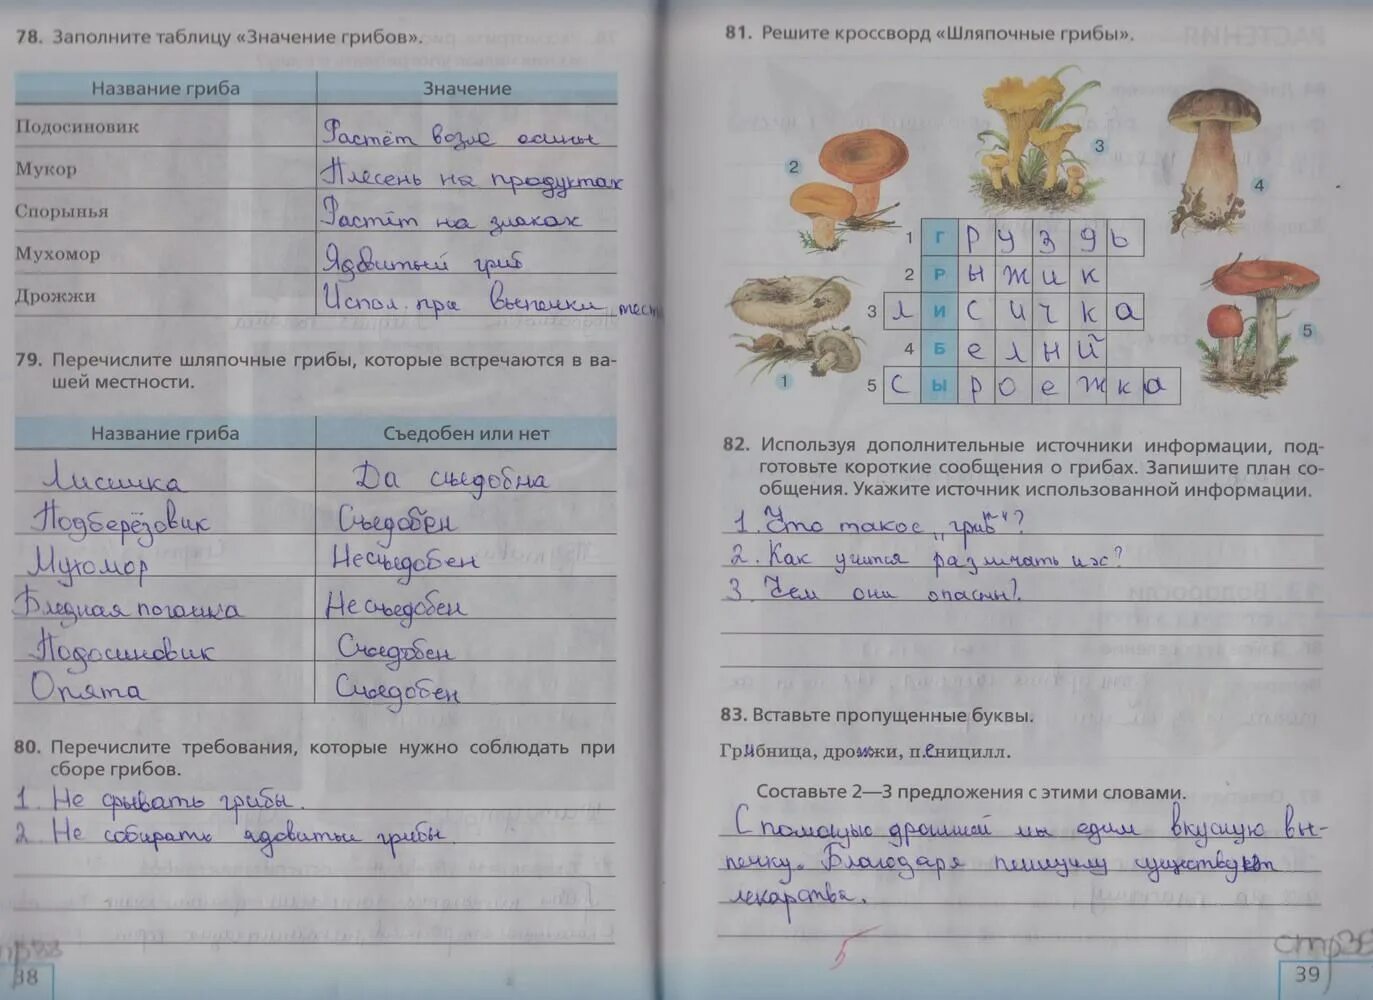 78. Заполните таблицу «Значение грибов».
Название гриба Значение
Подосиновик Растёт возле осины
Мукор Плесень на продуктах
Спорынья Растёт на злаках
Мухомор Ядовитый гриб
Дрожжи Испол. при выпечки тест
79. Перечислите шляпочные грибы, которые встречаются в ва-
шей местности.
Название гриба Съедобен или нет
Лисичка Да съедобна
Подберёзовик Съедобен
Мухомор Несъедобен
Бледная поганка Несъедобен
Подосиновик Съедобен
Опята Съедобен
80. Перечислите требования, которые нужно соблюдать при
сборе грибов.
1. Не срывать грибы.
2. Не собирать ядовитые грибы.
стр38
38
81. Решите кроссворд «Шляпочные грибы».
2
3
4
1
5
1 Г Р У З Д Ь
2 Р Ы Ж И К
3 Л И С И Ч К А
4 Б Е Л Н И Й
5 С Ы Р О Е Ж К А
82. Используя дополнительные источники информации, под-
готовьте короткие сообщения о грибах. Запишите план со-
общения. Укажите источник использованной информации.
1. Что такое „гриб"?
2. Как учится различать их?
3. Чем они опасны?
83. Вставьте пропущенные буквы.
Грибница, дрожжи, пеницилл.
Составьте 2—3 предложения с этими словами.
С помощью дрожжей мы едим вкусную вы-
печку. Благодаря существует
лекарства.
5
стр39
39